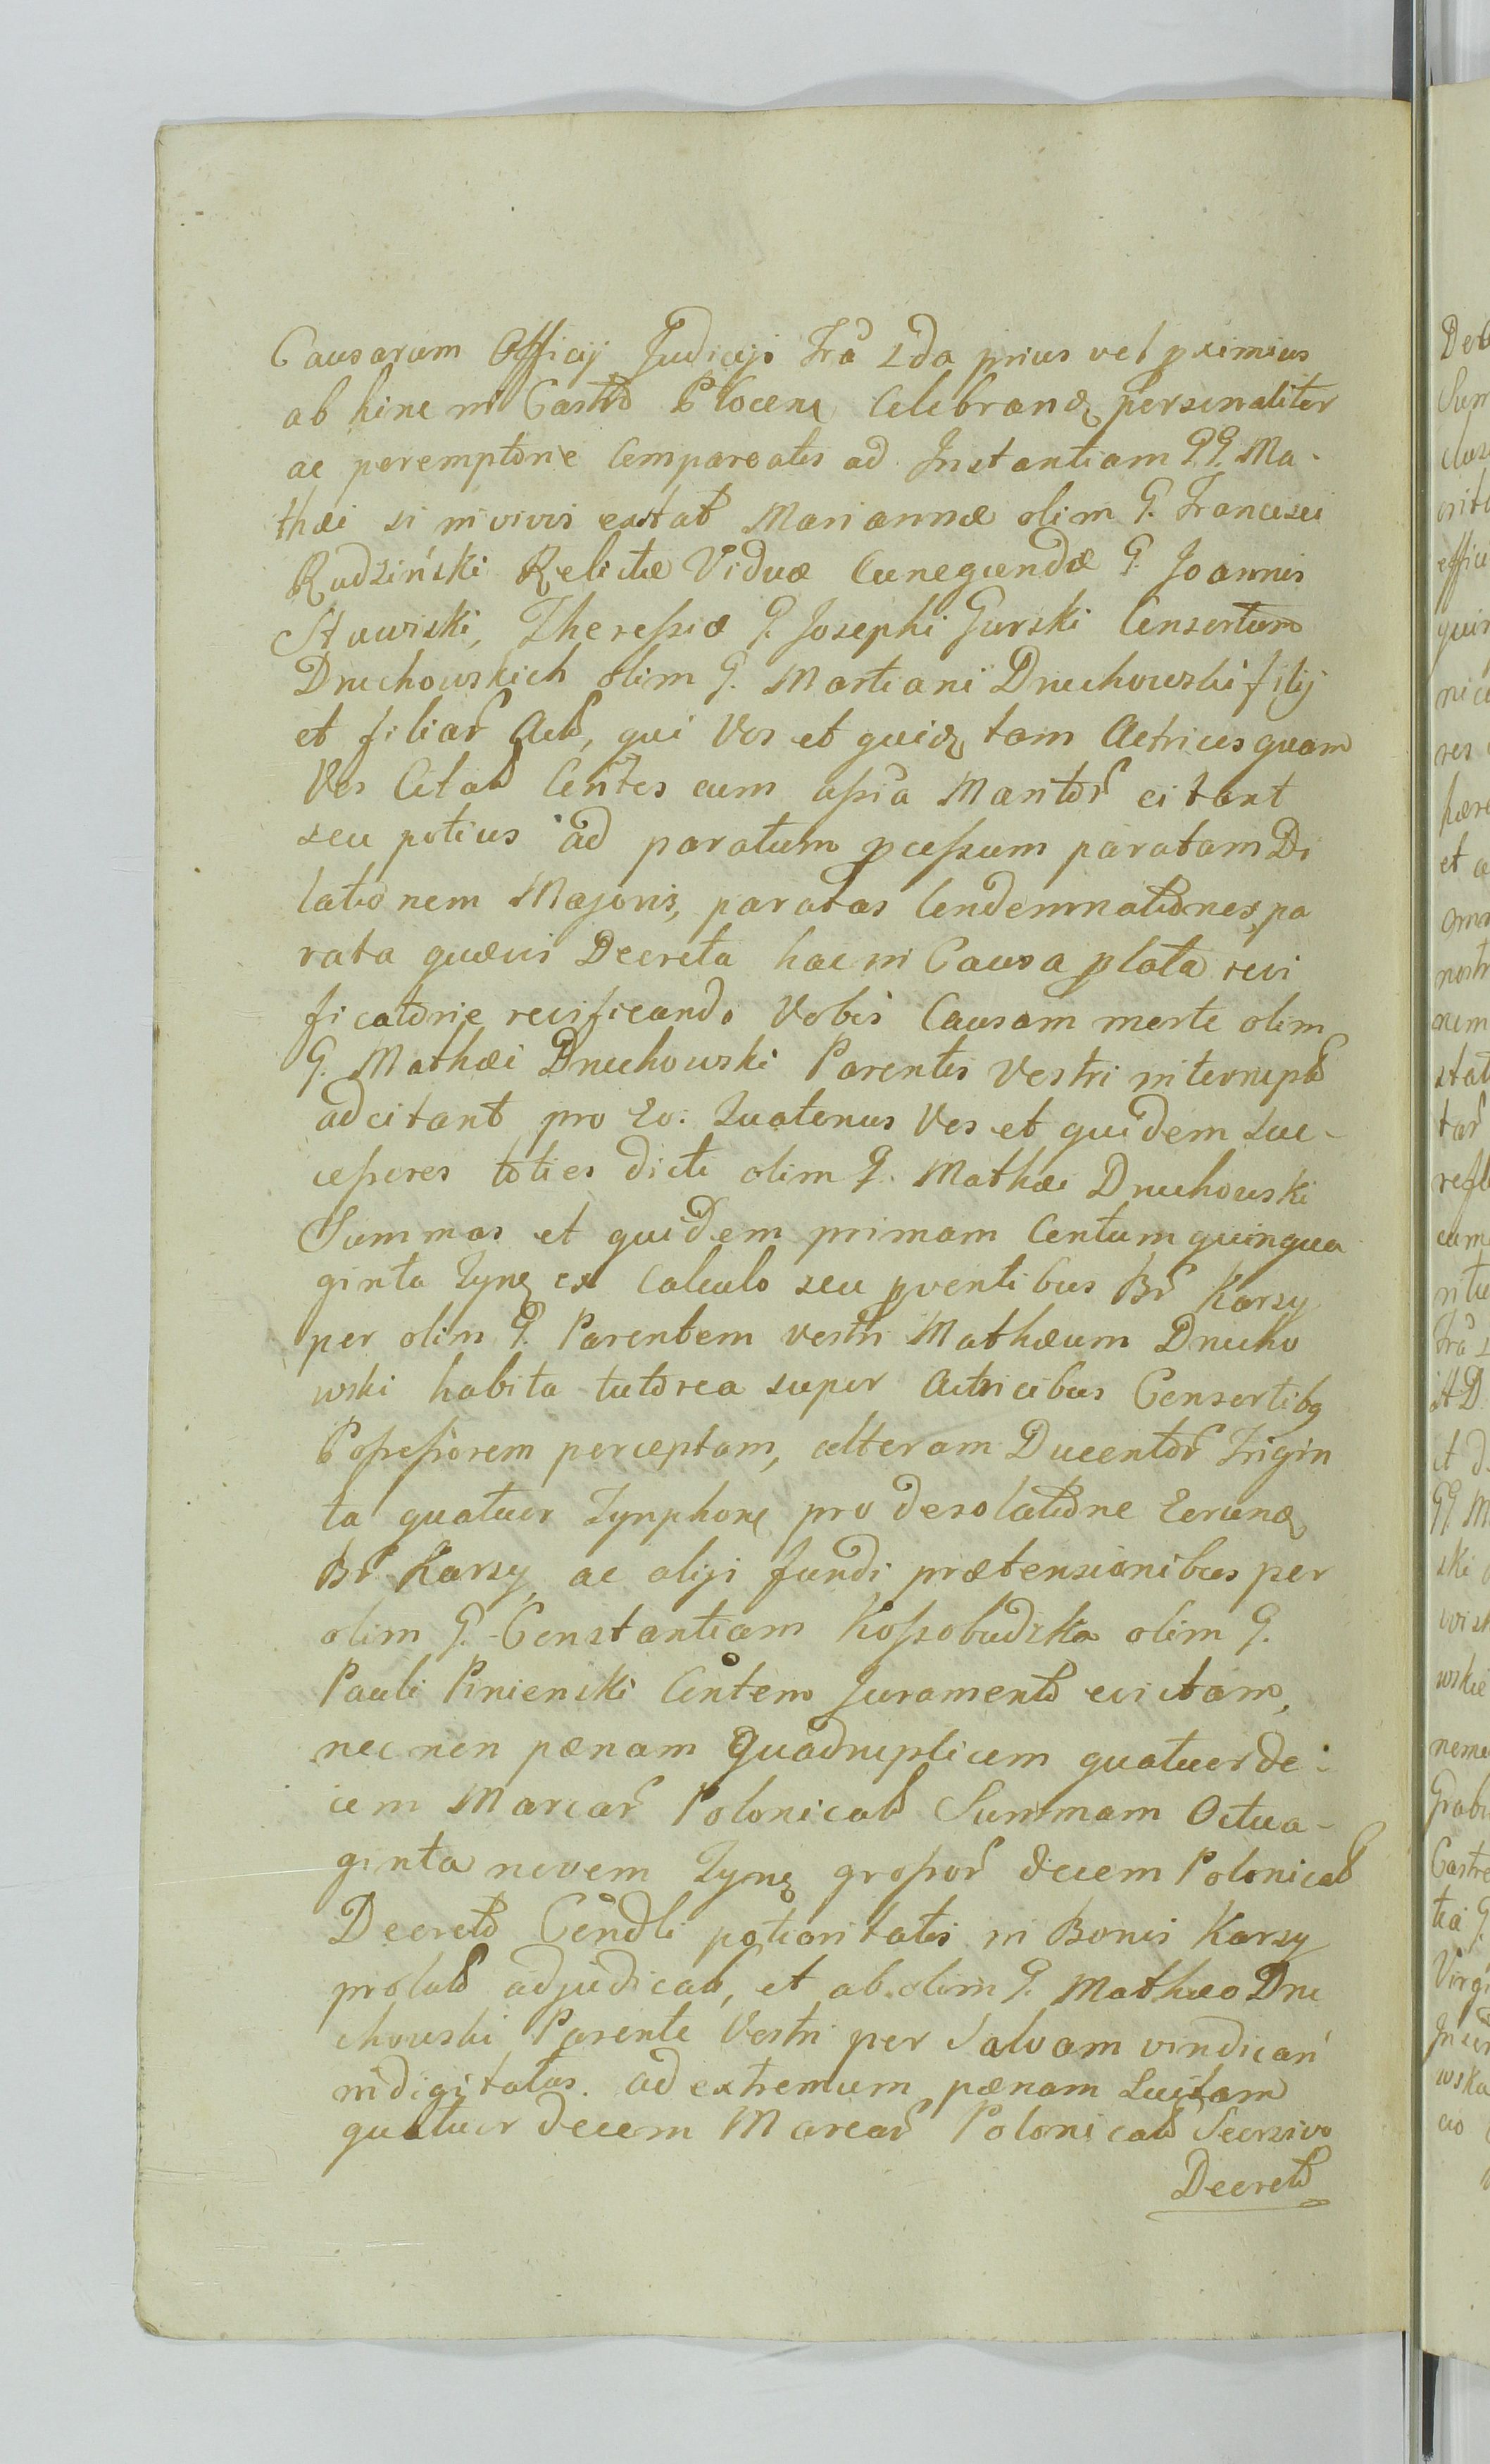 Causarum Officij Judicijs Fra 2da prius vel pximius
ab hinc in Castro Plocen Celebrand personaliter
ac peremptorie Compareatis ad Instantiam GG. Ma-
thæi si in vivis extat Mariannæ olim G. Francisci
Rudziński Relictæ Viduæ Cunegundæ G. Joannis
Stawiski, Theressiæ G. Josephi Gurski Consortum
Druchowskich olim G. Martiani Druchowski filij
et filiar Act, qui Vos et quid tam Actrices quam
Vos Citat Contes cum assia Maritor citant
seu potius ad paratum pcessum paratam Di
lationem Majoris, paratas Condemnationes, pa
rata quævis Decreta hac in Causa plata reui
ficatorie reificando Vobis Causam morte olim
G. Mathæi Druchowski Parentis Vestri interrupt
adcitant pro Eo. Quatenus Vos et quidem Suc-
cessores toties dicti olim G. Mathæi Druchowski
Summas et quidem primam Centum quinqua
ginta Tynf ex Calculo seu pventibus Br Karsy
per olim G. Parentem vestri Mathæum Drucho
wski habita tutorea super Actricibus Consortibq
Possessiorem perceptam, alteram Ducentor Trigin
ta quatuor Tynphon pro desolatione Eorund
Br Karsy ac aliji fundi prætensionibus per
olim G. Constantiam Kossobudzka olim G.
Pauli Pinienski Contem Juramento evictam,
nec non pænam Quadruplicem quatuor de-
cem Marcar Polonicat Summam Octua-
ginta novem Tynf grossor decem Polonicat
Decreto Condli potioritatis in Bonis Karsy
prolat adjudicat, et ab olim G. Mathæo Dru
chowski Parente Vestri per Salvam vindican
indigitatas. ad extremum pænam Luitam
quatuor decem Marcar Polonicat Seorsivo
Decreto